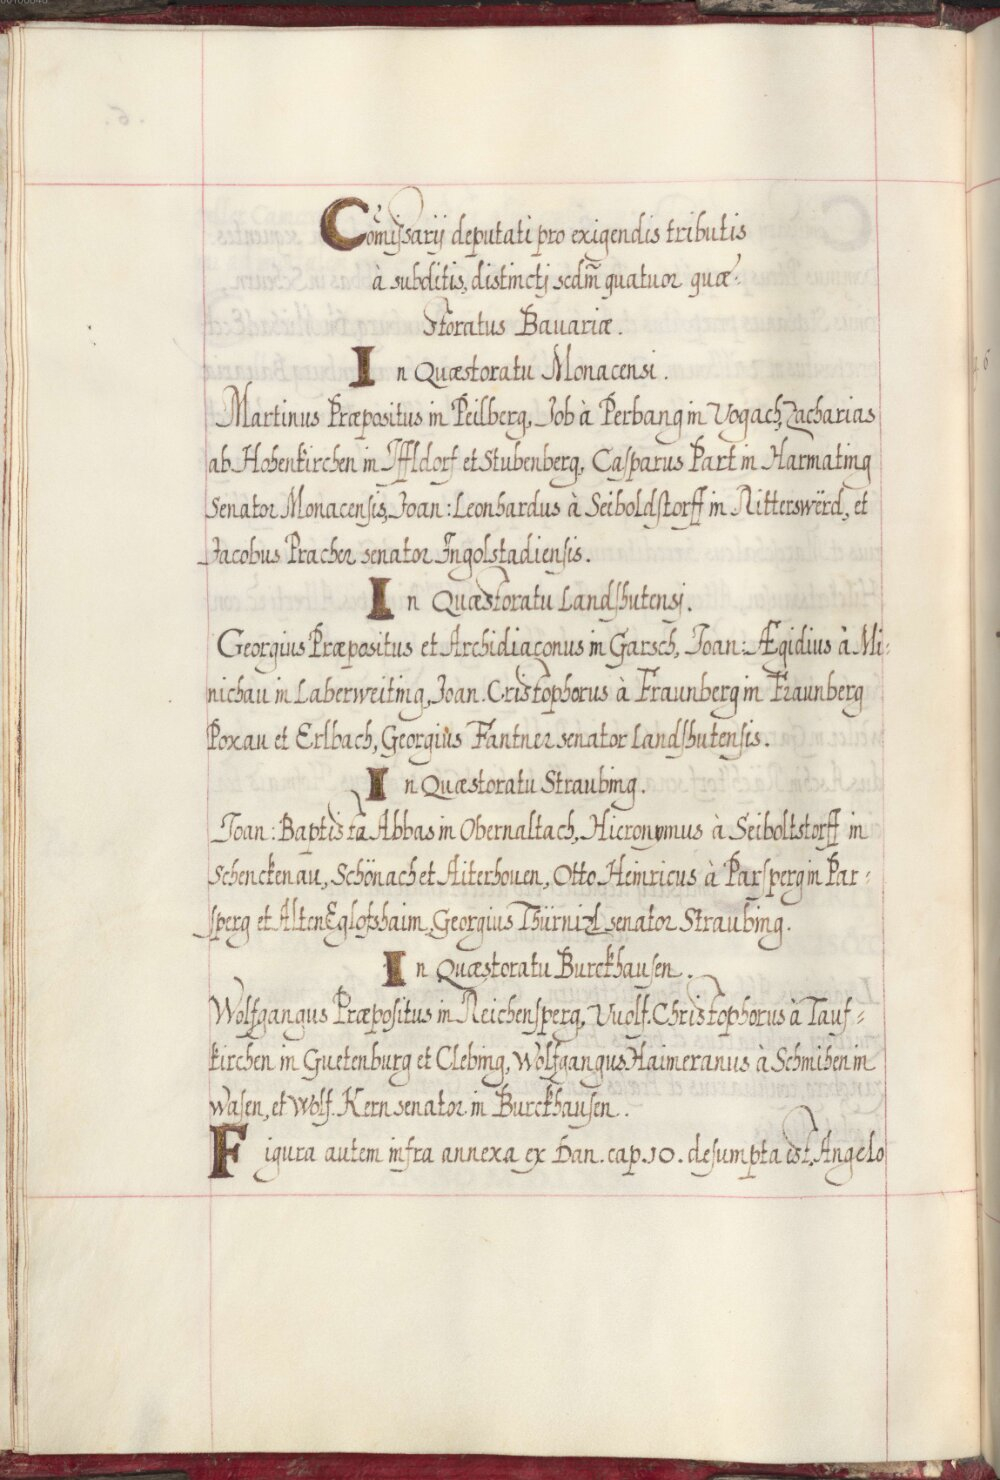 Com̃isarij deputati pro exigendis tributis
à subditis, distinctj scdm̃ quatuor quæ-
storatus Bauariæ.
In Quæstoratu Monacensi.
Martinus Præpositus in Peilberg, Job à Perbang in Vogach, Zacharias
ab Hohenkirchen in Iffldorf et Stubenberg, Casparus Part in Harmating
Senator Monacensis, Joan: Leonhardus à Seiboldstorff in Ritterswërd, et
Jacobus Pracher senator Ingolstadiensis.
In Quæstoratu Landshutensj.
Georgius Præpositus et Archidiaconus in Garsch, Joan: Ægidius à Mi-
nichau in Laberweiting, Joan. Cristophorus à Fraunberg in Fraunberg
Poxau et Erlbach, Georgius Fantner senator Landshutensis.
In Quæstoratu Straubing.
Joan: Baptista Abbas in Obernaltach, Hieronymus à Seiboltstorff in
Schenckenau, Schönach et Aiterhouen, Otto Heinricus à Parsperg in Par-
sperg et Alten Eglofshaim, Georgius Thürnizl senator Straubing.
In Quæstoratu Burckhausen.
Wolfgangus Præpositus in Reichensperg, Vuolf. Christophorus à Tauf-
kirchen in Guetenburg et Clebing, Wolfgangus Haimeranus à Schmihen in
Wasen, et Wolf. Kern senator in Burckhausen.
Figura autem infra annexa ex Dan. cap. 10. desumpta est, Angelo